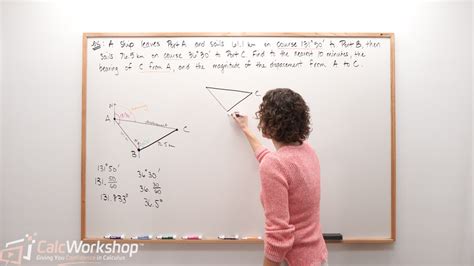 A Ship leaves Port A and sails 61.1 km on course 131°50' to Port B, then
sails 76.5 km on course 36°30' to Port C. Find to the nearest 10 minutes, the
bearing of C from A, and the magnitude of the displacement from A to C.
C
N
A
displacement
C
B
131°50'
36°30'
131. 50/60
36. 30/60
131.833°
36.5°
CalcWorkshop™
Giving You Confidence in Calculus